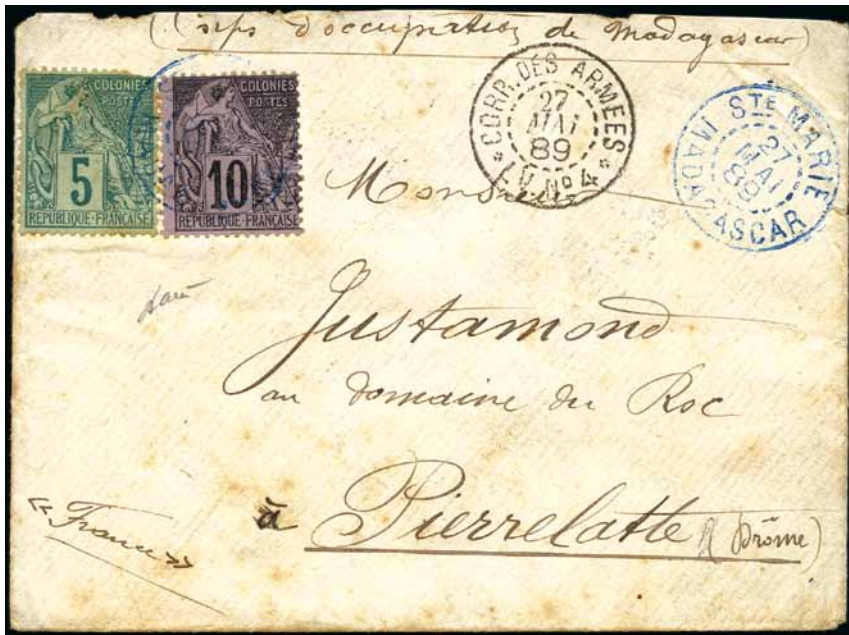 (Corps d'occupation de Madagascar)
COLONIES
POSTES
5
REPUBLIQUE FRANÇAISE
COLONIES
POSTES
10
REPUBLIQUE FRANÇAISE
CORR. DES ARMEES
27
MAI
89
LV. Nº 4
STE MARIE
27
MAI
89
MADAGASCAR
Monsieur
Justamond
au Domaine du Roc
à Pierrelatte (Drôme)
« France »